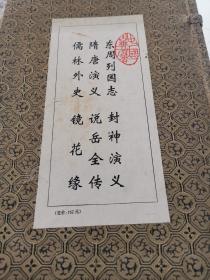 东周列国志 封神演义
隋唐演义 说岳全传
儒林外史 镜花缘